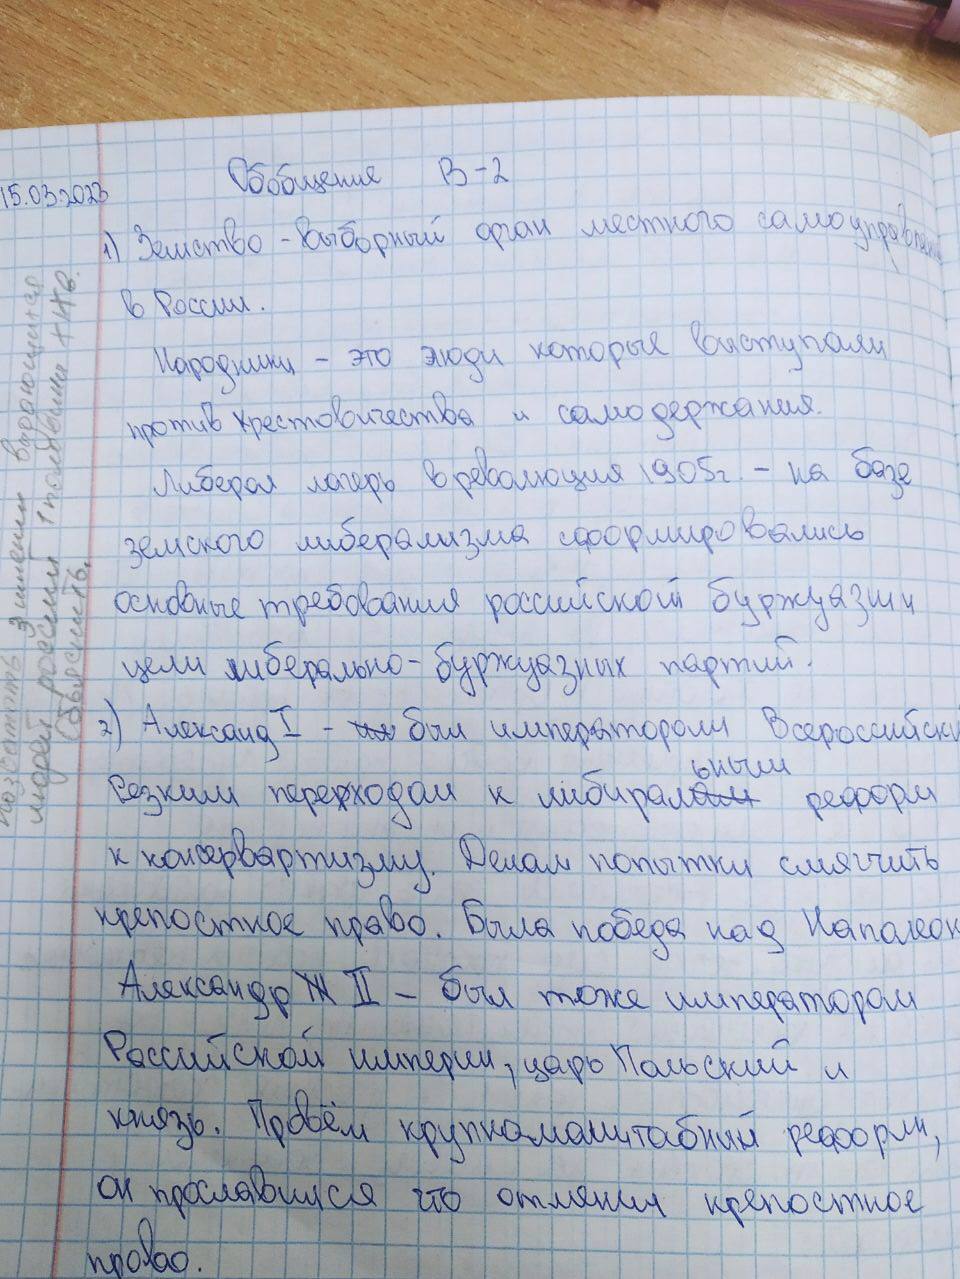 15.03.2023
Обобщения В-2
1) Земство - выборный орган местного самоуправления
в России.
Народники - это люди которые выступали
против крестовичества и самодержания.
Либерал лагерь в революция 1905г. - на базе
земского либерализма сформировались
основные требования российской буржуазии
цели либерально-буржуазных партий.
2) Александ I - был императором Всероссийски
Резким переходом к либиральными реформ
к консервартизму. Делал попытки смягчить
крепостное право. Была победа над Наполеон
Александр II - был тоже императором
Российской империи, царь Польский и
князь. Провём крупнамаштабный реформ,
он прославился что отменил крепостное
право.
людей России 1 половины XIX в.
(объяснить.